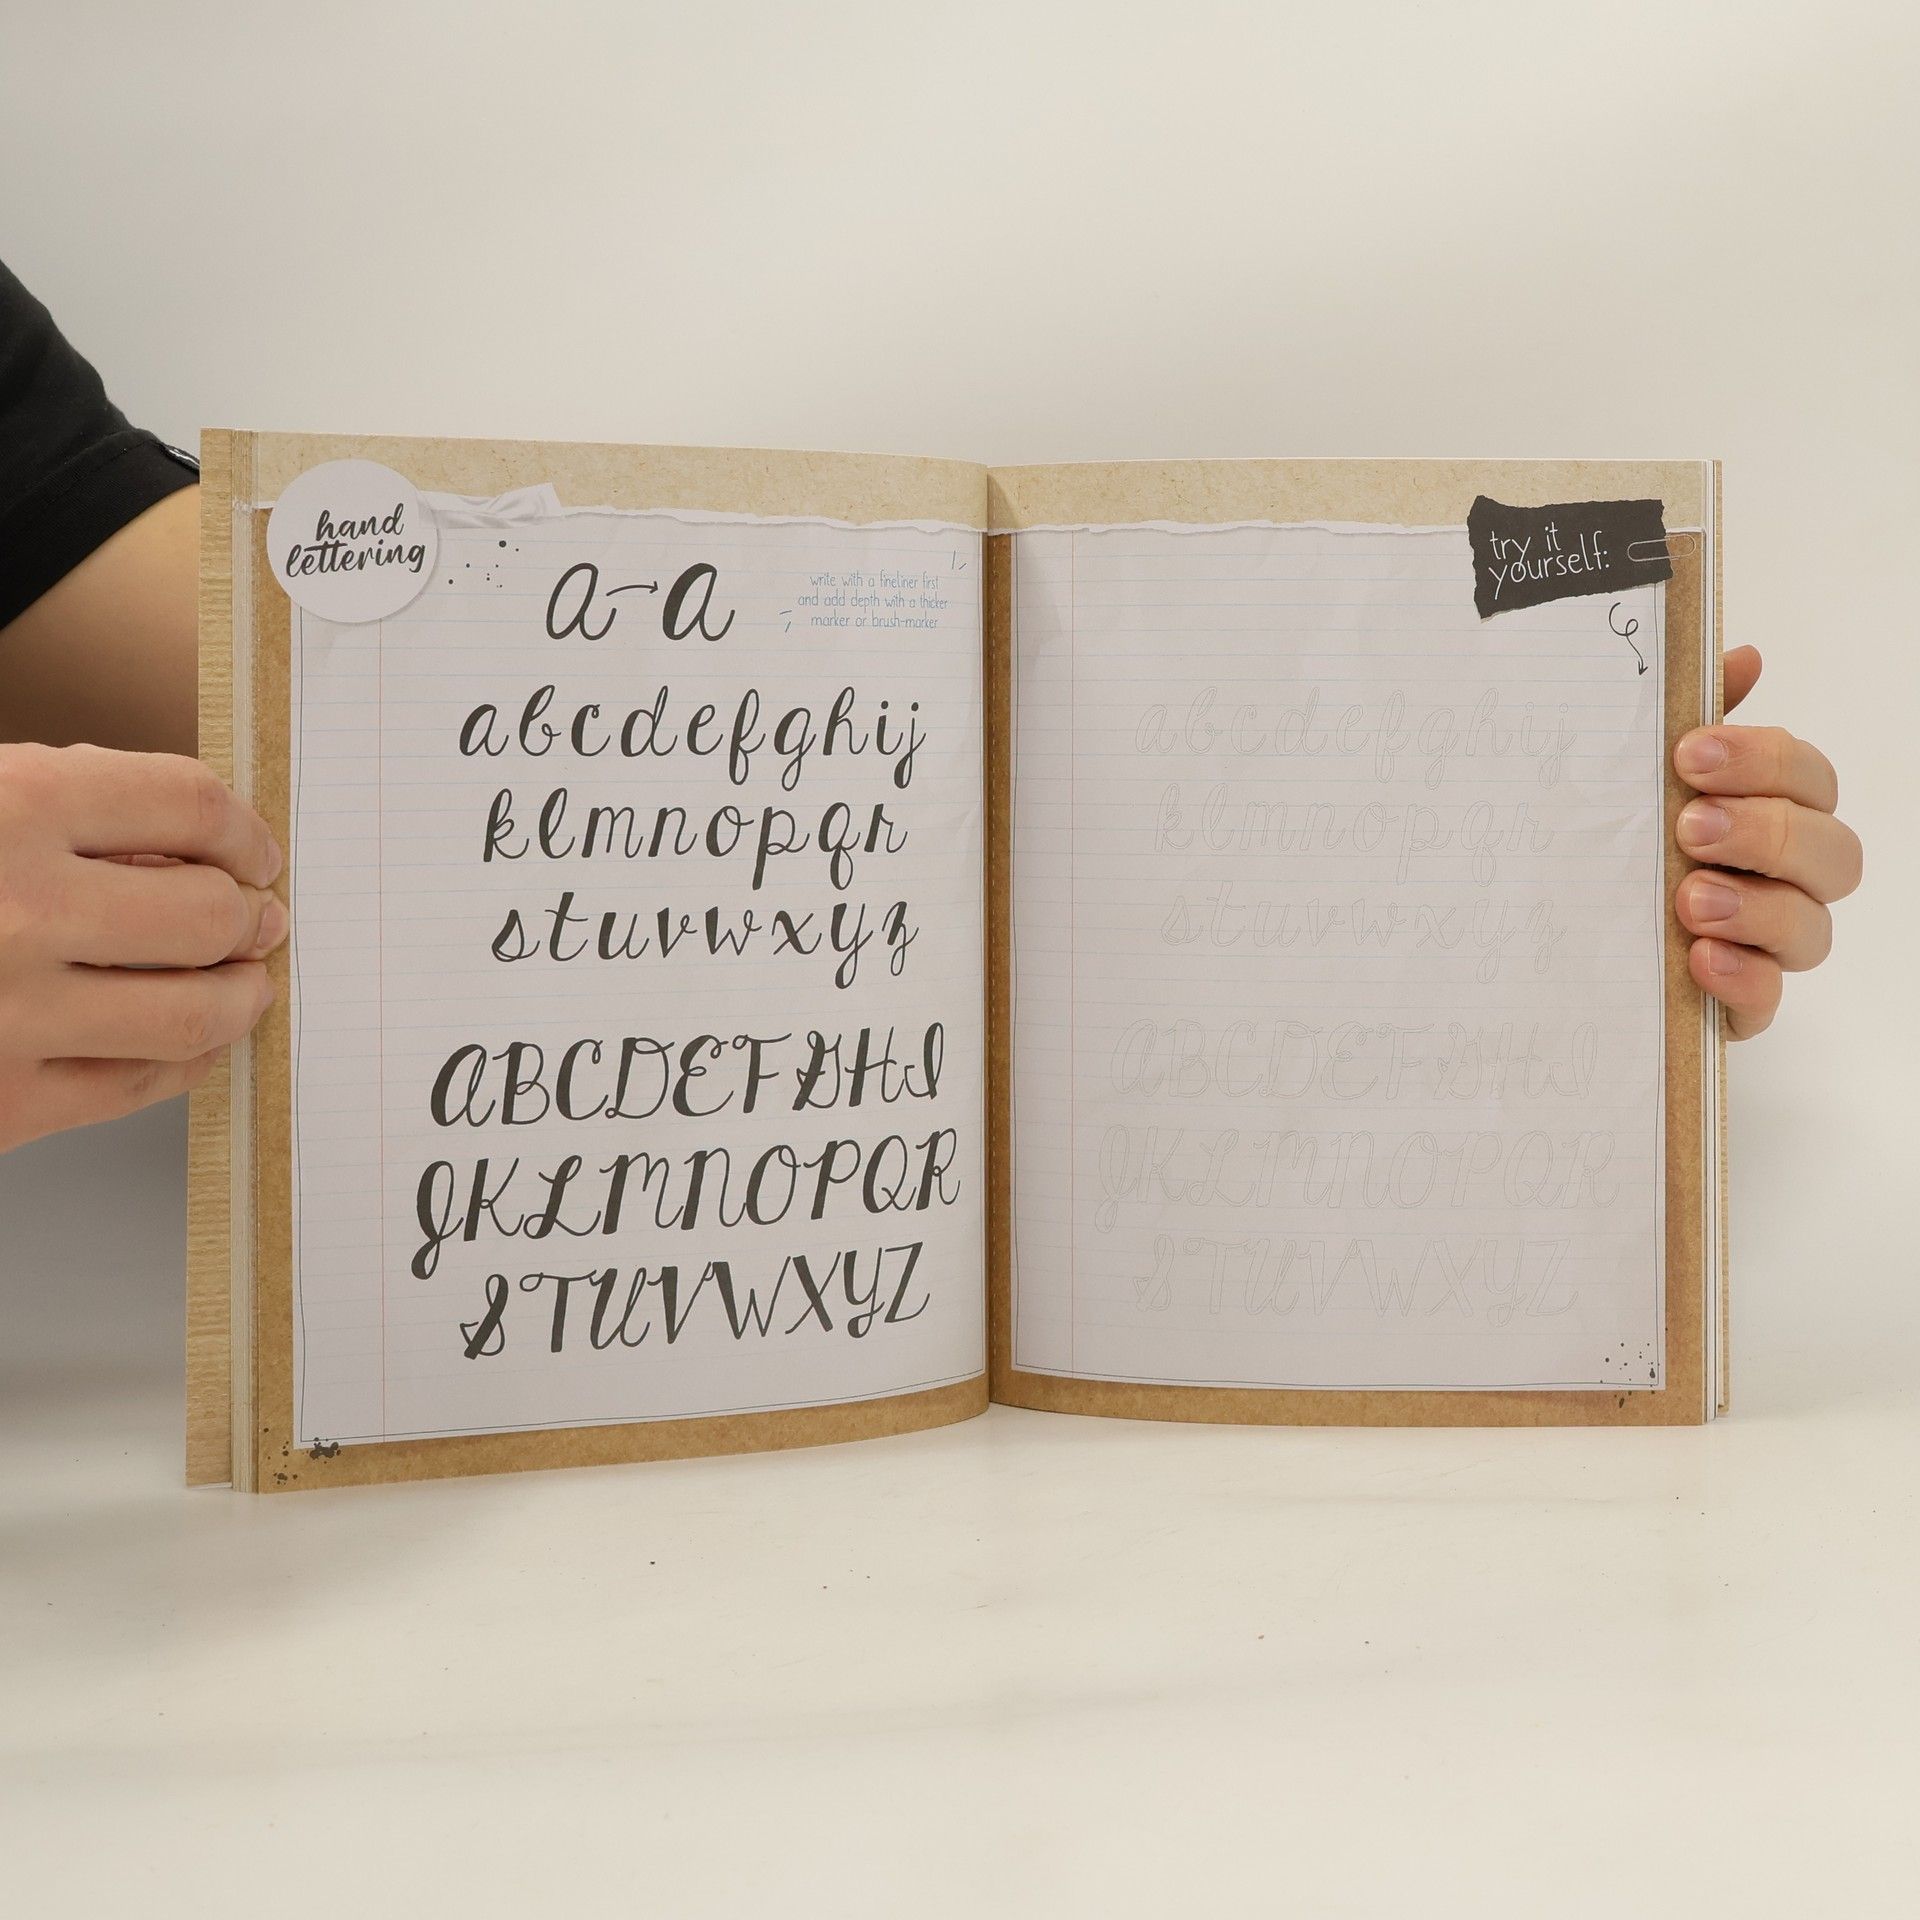 hand
lettering
a→a
write with a fineliner first
and add depth with a thicker
marker or brush-marker
abcdefghij
klmnopqr
stuvwxyz
ABCDEFGHI
JKLMNOPQR
STUVWXYZ
try it
yourself:
abcdefghij
klmnopqr
stuvwxyz
ABCDEFGHI
JKLMNOPQR
STUVWXYZ